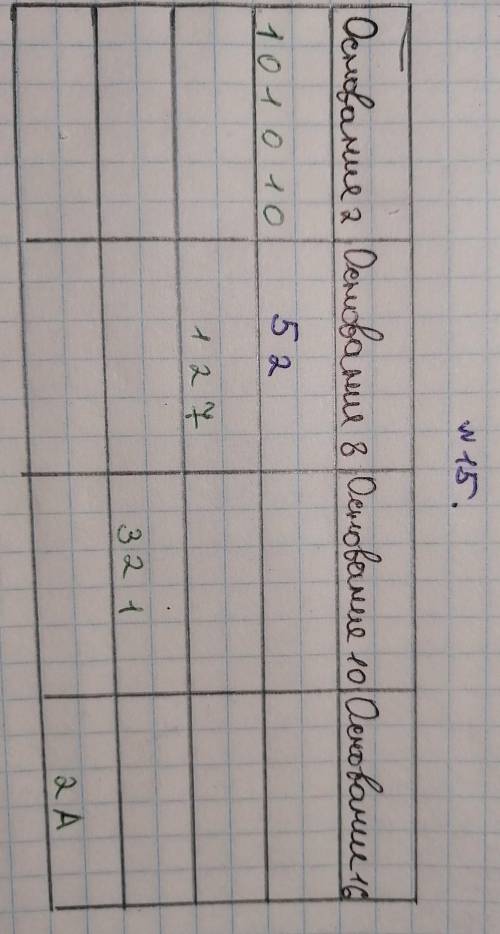 №15.
Основание 2 Основание 8 Основание 10 Основание 16
101010 52
127
321
2A